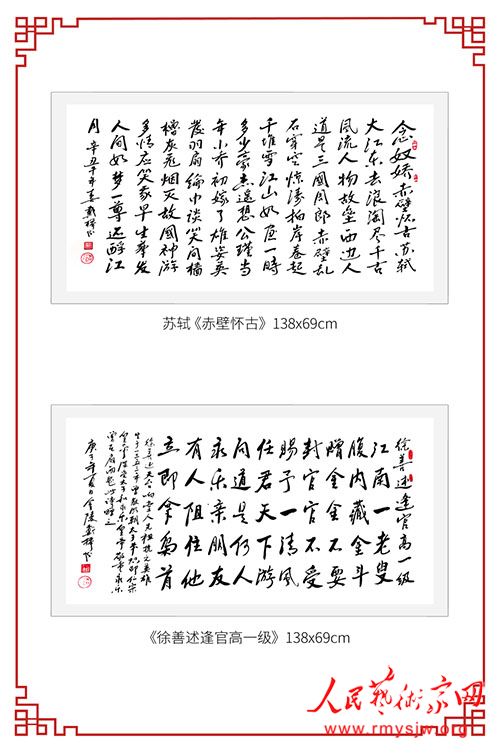 念奴娇赤壁怀古苏轼
大江东去浪淘尽千古
风流人物故垒西边人
道是三國周郎赤壁乱
石穿空惊涛拍岸卷起
千堆雪江山如画一时
多少豪杰遥想公瑾当
年小乔初嫁了雄姿英
发羽扇纶巾谈笑间樯
橹灰飞烟灭故國神游
多情应笑我早生华发
人间如梦一尊还酹江
月 辛丑年春
苏轼《赤壁怀古》138x69cm
徐善述逢官高一级
江南一老叟
腹内藏金斗
赠金金不要
封官官不受
赐予一清风
任君天下游
问道是何人
永乐亲朋友
有人阻住他
立即拿枭首
《徐善述逢官高一级》138x69cm
人民藝術家网
www.rmysjw.org